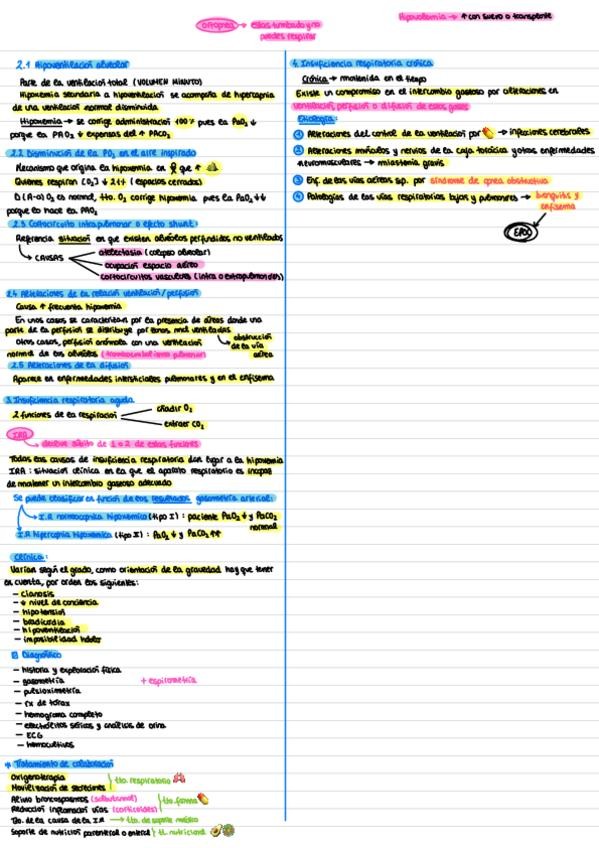 Ortopnea → estas tumbado y no puedes respirar
Hipovolemia → ↑ con suero o transplante
2.1 Hipoventilación alveolar
Parte de la ventilación total (VOLUMEN MINUTO)
Hipoxemia secundaria a hipoventilación se acompaña de hipercapnia
de una ventilación normal disminuida
Hipoxemia → se corrige administración 100% pues la PaO₂ ↓
porque la PAO₂ ↓ expensas del ↑ PACO₂
2.2 Disminución de la PO₂ en el aire inspirado
Mecanismo que origina la hipoxemia en que ↑
Quienes respiran [O₂] ↓ 21% (espacios cerrados)
D(A-a)O₂ es normal, tto. O₂ corrige hipoxemia pues la PaO₂ ↓↓
porque lo hace la PAO₂
2.3 Cortocircuito intrapulmonar o efecto shunt:
Referencia situación en que existen alveolos perfundidos no ventilados
↳ CAUSAS
atelectasia (colapso alveolar)
ocupación espacio aéreo
cortocircuitos vasculares (intra o extrapulmonares)
2.4 Alteraciones de la relación ventilación/perfusión
Causa ↑ frecuente hipoxemia
En unos casos se caracterizan por la presencia de áreas donde una
parte de la perfusión se distribuye por zonas mal ventiladas
→ obstrucción de la vía aérea
Otros casos, perfusión anómala con una ventilación
normal de los alvéolos (tromboembolismo pulmonar)
2.5 Alteraciones de la difusión
Aparece en enfermedades intersticiales pulmonares y en el enfisema
3. Insuficiencia respiratoria aguda
2 funciones de la respiración
añadir O₂
extraer CO₂
IRA
↳ declive súbito de 1 o 2 de estas funciones
Todas las causas de insuficiencia respiratoria dan lugar a la hipoxemia
IRA: situación clínica en la que el aparato respiratorio es incapaz
de mantener un intercambio gaseoso adecuado
Se puede clasificar en función de los resultados gasometría arterial:
→ I.R normocapnica hipoxémica (tipo I): paciente PaO₂ ↓ y PaCO₂ normal
I.R hipercapnia hipoxémica (tipo II): PaO₂ ↓ y PaCO₂ ↑↑
Clínica:
Varían según el grado, como orientación de la gravedad hay que tener
en cuenta, por orden los siguientes:
– cianosis
– ↓ nivel de conciencia
– hipotensión
– bradicardia
– hipoventilación
– imposibilidad hablar
Diagnóstico
– historia y exploración física
– gasometría + espirometría
– pulsioximetría
– rx de tórax
– hemograma completo
– electrólitos séricos y análisis de orina
– ECG
– hemocultivos
* Tratamiento de colaboración
Oxigenoterapia
Movilización de secreciones
tto. respiratorio
Alivio broncoespasmos (salbutamol)
Reducción inflamación vías (corticoides)
tto. farmaco
Tto. de la causa de la IR → tto. de soporte médico
Soporte de nutrición parenteral o enteral } tt. nutricional
4. Insuficiencia respiratoria crónica
Crónica → mantenida en el tiempo
Existe un compromiso en el intercambio gaseoso por alteraciones en
ventilación, perfusión o difusión de estos gases
Etiología:
① Alteraciones del control de la ventilación por → infecciones cerebrales
② Alteraciones músculos y nervios de la caja torácica y otras enfermedades
neuromusculares → miastenia gravis
③ Enf. de las vías aéreas sup. por síndrome de apnea obstructiva
④ Patologías de las vías respiratorias bajas y pulmonares → bronquitis y enfisema
EPOC